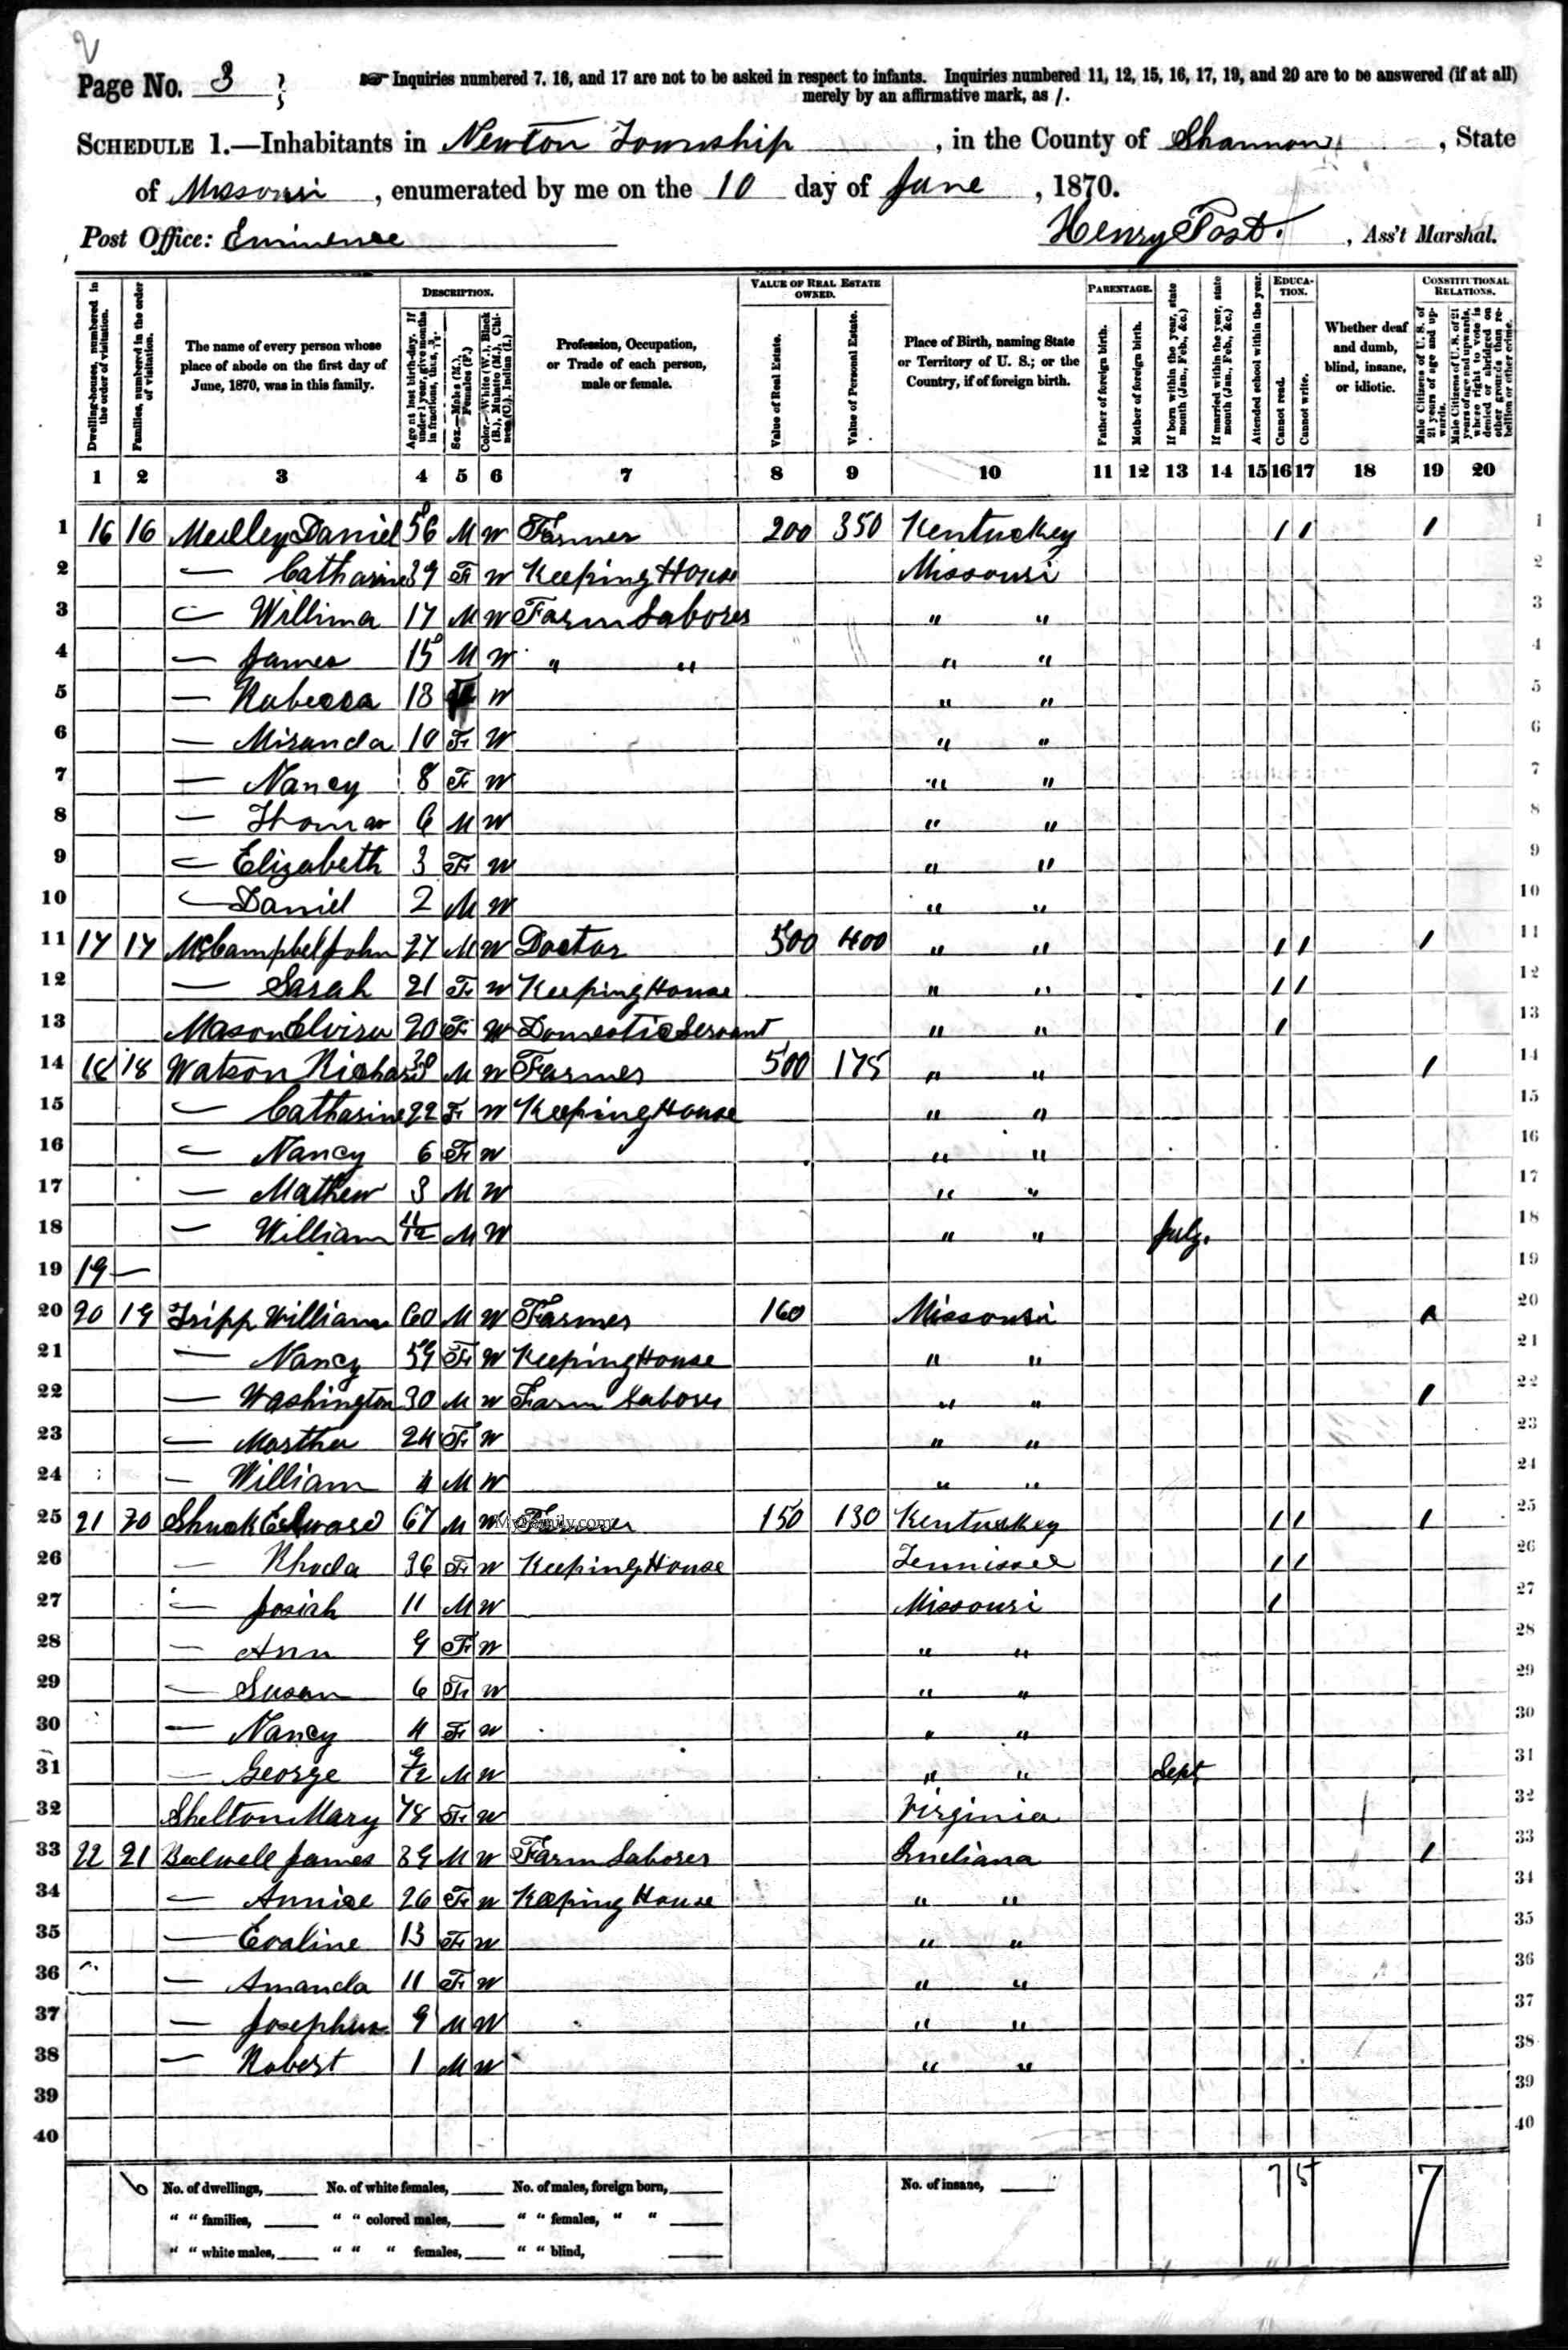 2
Page No. 3
☞ Inquiries numbered 7, 16, and 17 are not to be asked in respect to infants. Inquiries numbered 11, 12, 15, 16, 17, 19, and 20 are to be answered (if at all)
merely by an affirmative mark, as /.
SCHEDULE 1.—Inhabitants in Newton Township, in the County of Shannon, State
of Missouri, enumerated by me on the 10 day of June, 1870.
Post Office: Eminence Henry Post., Ass't Marshal.
Dwelling-houses, numbered in the order of visitation.
Families, numbered in the order of visitation.
The name of every person whose place of abode on the first day of June, 1870, was in this family.
DESCRIPTION.
Age at last birth-day. If under 1 year, give months in fractions, thus, 3/12.
Sex.—Males (M.), Females (F.)
Color.—White (W.), Black (B.), Mulatto (M.), Chinese (C.), Indian (I.)
Profession, Occupation, or Trade of each person, male or female.
VALUE OF REAL ESTATE OWNED.
Value of Real Estate.
Value of Personal Estate.
Place of Birth, naming State or Territory of U. S.; or the Country, if of foreign birth.
PARENTAGE.
Father of foreign birth.
Mother of foreign birth.
If born within the year, state month (Jan., Feb., &c.)
If married within the year, state month (Jan., Feb., &c.)
Attended school within the year.
EDUCATION.
Cannot read.
Cannot write.
Whether deaf and dumb, blind, insane, or idiotic.
CONSTITUTIONAL RELATIONS.
Male Citizens of U. S. of 21 years of age and upwards.
Male Citizens of U. S. of 21 years of age and upwards, where right to vote is denied or abridged on other grounds than rebellion or other crime.
1 2 3 4 5 6 7 8 9 10 11 12 13 14 15 16 17 18 19 20
1 16 16 Medley Daniel 56 M W Farmer 200 350 Kentuckey / / / 1
2 — Catharine 39 F W Keeping House Missouri 2
3 — Willima 17 M W Farm Laborer " " 3
4 — James 15 M W " " " " 4
5 — Rabecca 13 F W " " 5
6 — Miranda 10 F W " " 6
7 — Nancy 8 F W " " 7
8 — Thomas 6 M W " " 8
9 — Elizabeth 3 F W " " 9
10 — Daniel 2 M W " " 10
11 17 17 McCampbel John 27 M W Doctor 500 400 " " / / / 11
12 — Sarah 21 F W Keeping House " " / / 12
13 Mason Elvira 20 F W Domestic Servant " " / 13
14 18 18 Watson Richard 30 M W Farmer 500 175 " " / 14
15 — Catharine 22 F W Keeping House " " 15
16 — Nancy 6 F W " " 16
17 — Mathew 3 M W " " 17
18 — William 11/12 M W " " July. 18
19 19 — 19
20 20 19 Tripp William 60 M W Farmer 160 Missouri / 20
21 — Nancy 59 F W Keeping House " " 21
22 — Washington 30 M W Farm Laborer " " / 22
23 — Martha 24 F W " " 23
24 — William 4 M W " " 24
25 21 20 Shuck Edward 67 M W Farmer 150 130 Kentuckey / / / 25
MyFamily.com
26 — Rhoda 36 F W Keeping House Tennissee / / 26
27 — Josiah 11 M W Missouri / 27
28 — Ann 9 F W " " 28
29 — Susan 6 F W " " 29
30 — Nancy 4 F W " " 30
31 — George 9/12 M W " " Sept 31
32 Shelton Mary 78 F W Virginia 32
33 22 21 Bedwell James 39 M W Farm Laborer Indiana / 33
34 — Annice 26 F W Keeping House " " 34
35 — Evaline 13 F W " " 35
36 — Amanda 11 F W " " 36
37 — Josephus 9 M W " " 37
38 — Robert 1 M W " " 38
39 39
40 40
6 No. of dwellings, No. of white females, No. of males, foreign born, No. of insane, 7 5 7
" " families, " " colored males, " " females, " "
" " white males, " " " females, " " blind,